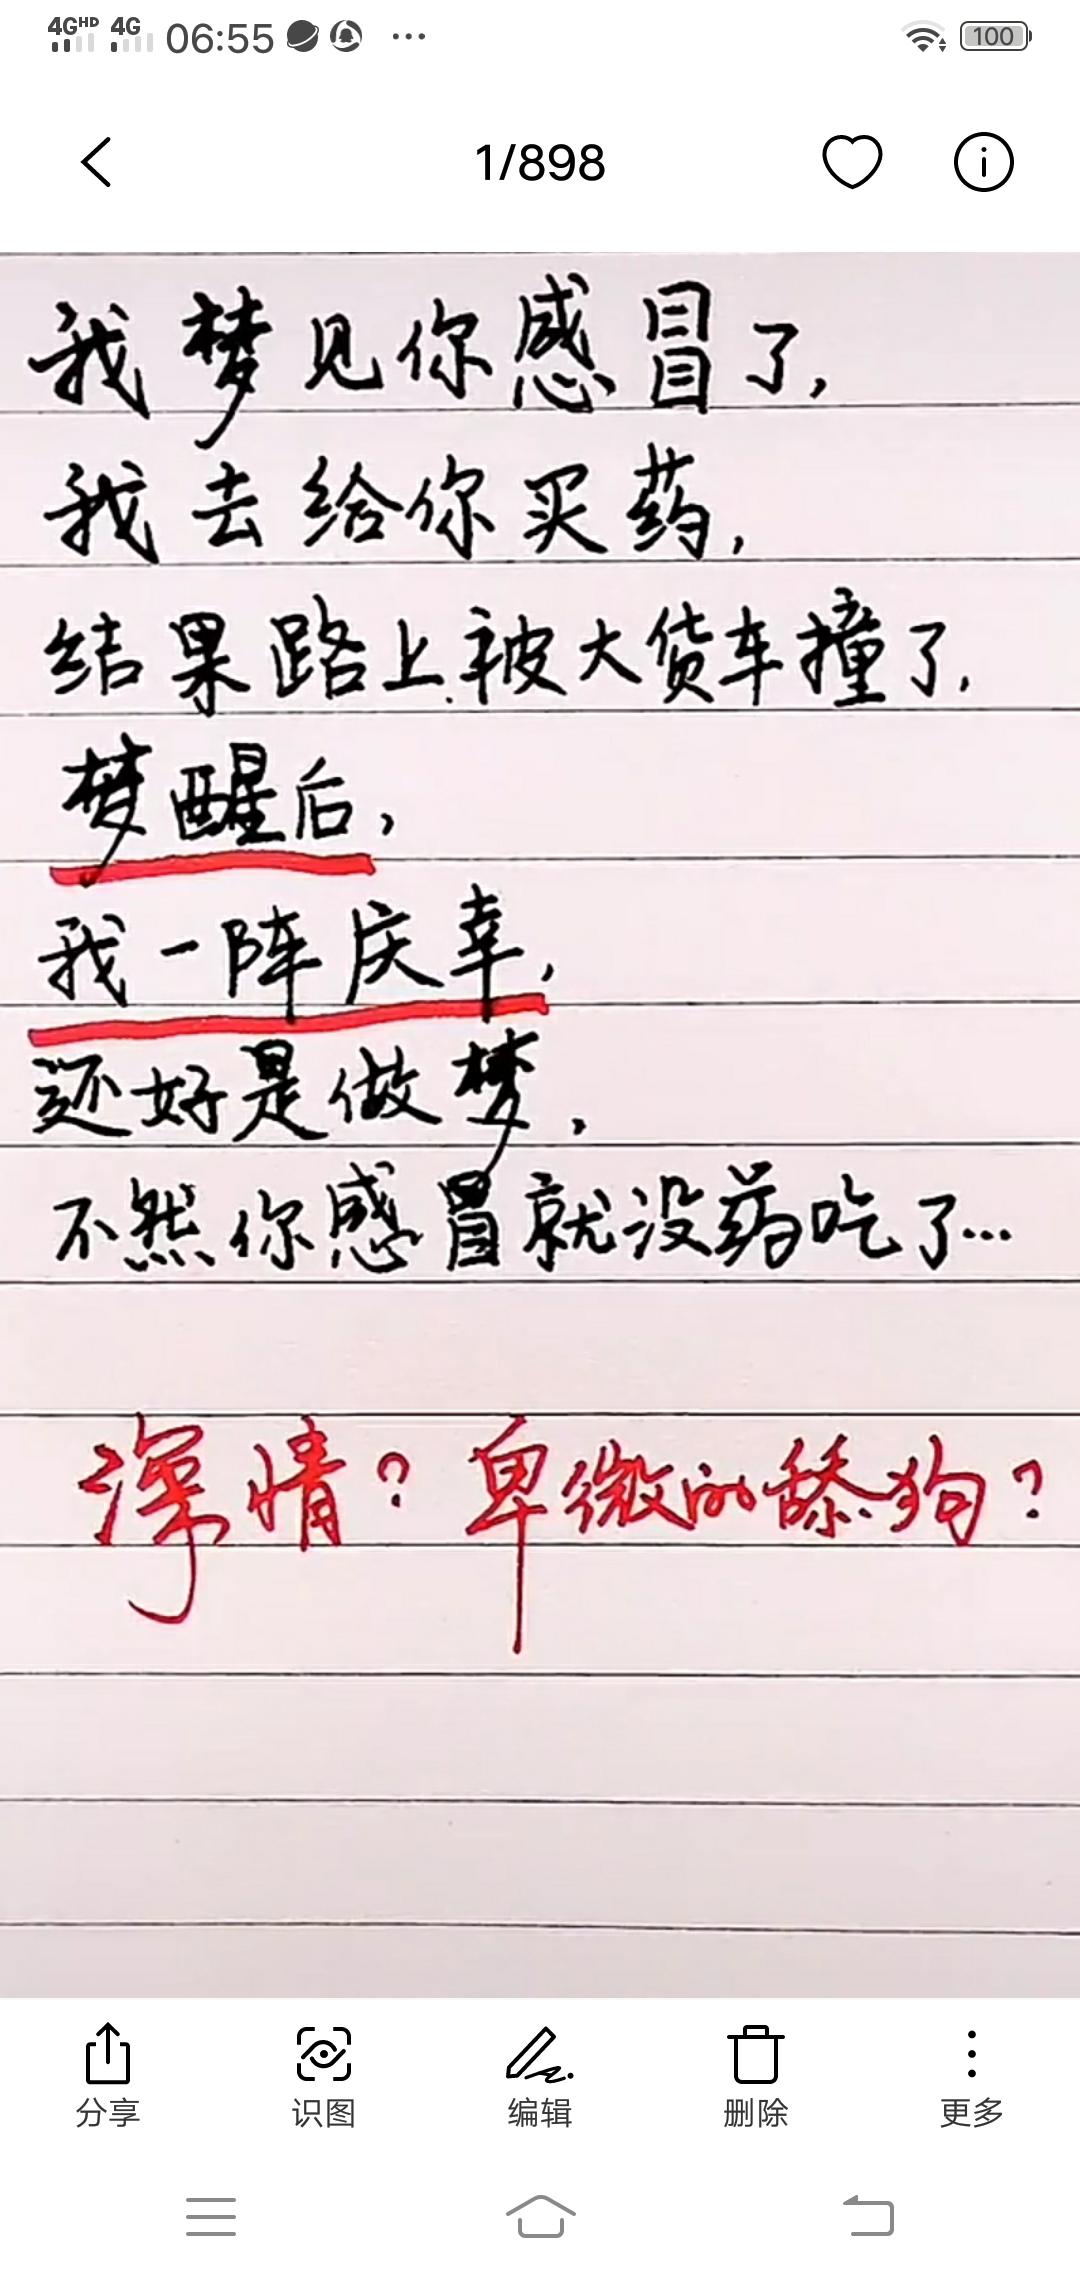 4GHD 4G 06:55 ... 100
1/898
我梦见你感冒了,
我去给你买药,
结果路上被大货车撞了,
梦醒后,
我一阵庆幸,
还好是做梦,
不然你感冒就没药吃了...
深情?卑微的舔狗?
分享 识图 编辑 删除 更多